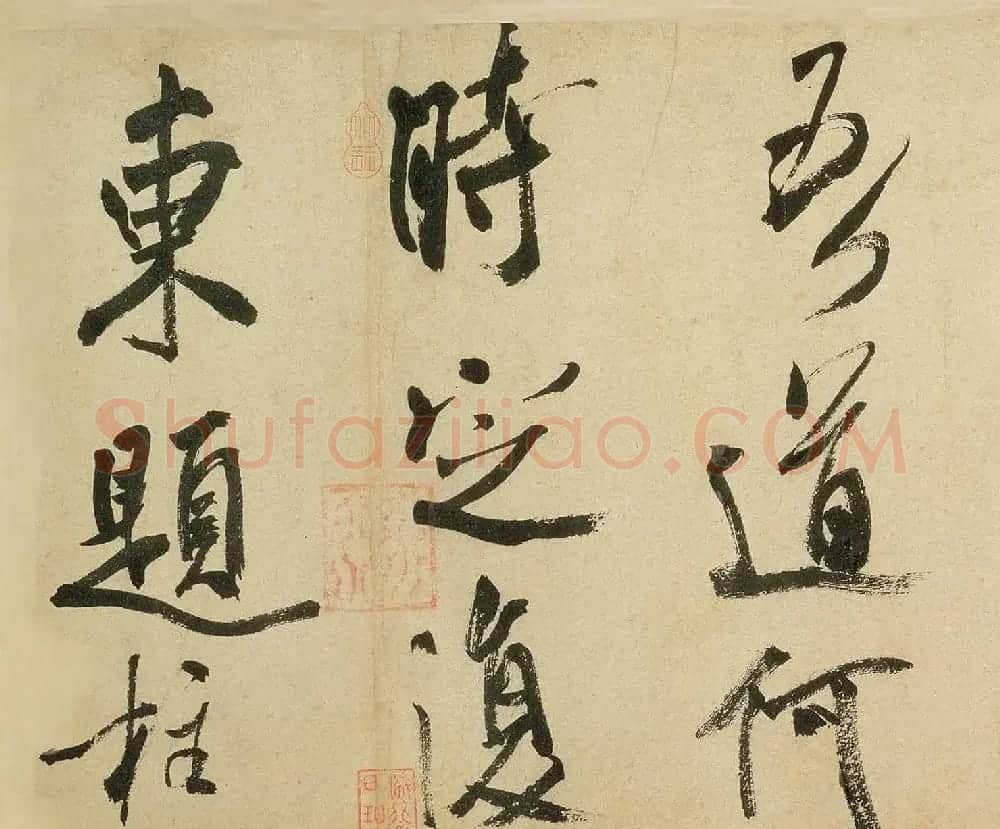 吾道何
時定復
東題柱
Shufaziliao.COM